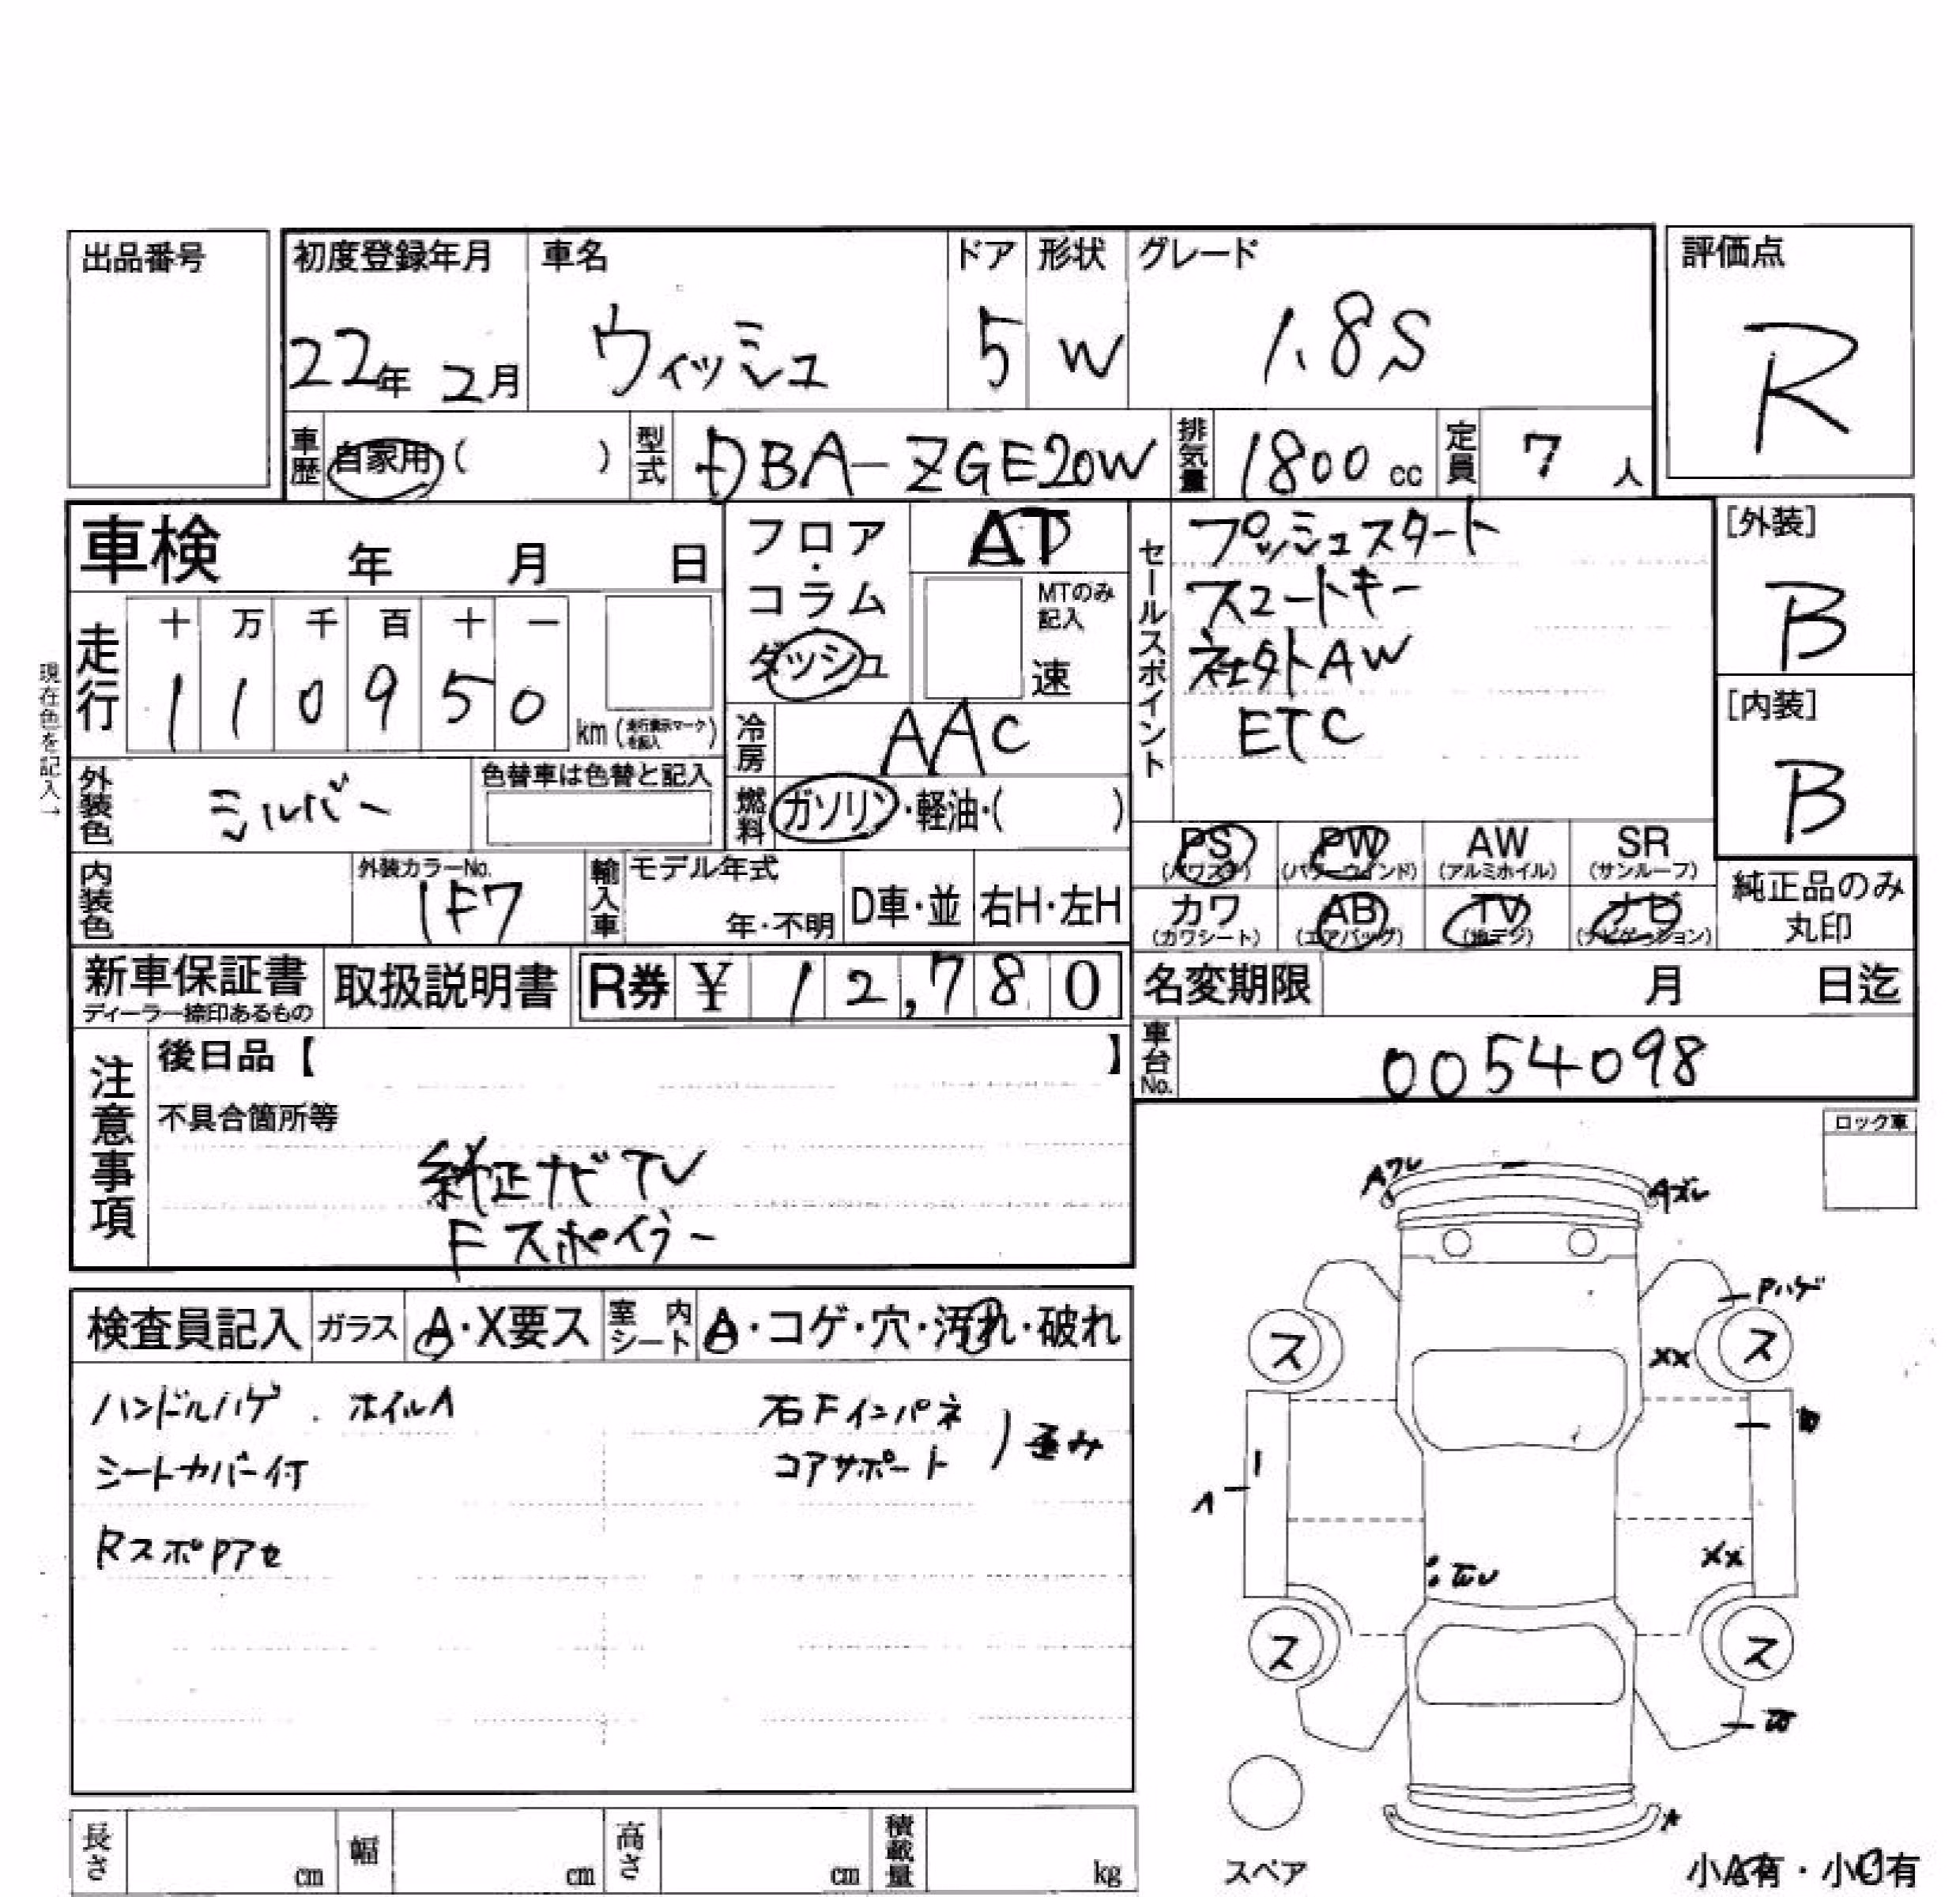 出品番号
初度登録年月 車名 ドア 形状 グレード 評価点
22年 2月 ウィッシュ 5 W 1.8S R
車歴 自家用 ( ) 型式 DBA-ZGE20W 排気量 1800 cc 定員 7 人
車検 年 月 日
フロア・コラム ダッシュ AT
MTのみ記入 速
セールスポイント
プッシュスタート
スマートキー
社外AW
ETC
[外装] B
[内装] B
現在色を記入→
走行 十 万 千 百 十 一
1 1 0 9 5 0 km (走行表示マークを記入)
冷房 AAC
外装色 シルバー 色替車は色替と記入
燃料 ガソリン・軽油・( )
PS (パワステ) PW (パワーウインド) AW (アルミホイル) SR (サンルーフ)
カワ (カワシート) AB (エアバッグ) TV (地デジ) ナビ (ナビゲーション)
純正品のみ丸印
内装色 外装カラーNo. 1F7 輸入車 モデル年式 年・不明 D車・並 右H・左H
新車保証書 ディーラー捺印あるもの 取扱説明書 R券 ¥ 12,780
名変期限 月 日迄
車台No. 0054098
注意事項
後日品【 】
不具合箇所等
純正ナビTV
Fスポイラー
ロック車
検査員記入 ガラス A・X要ス 室内シート A・コゲ・穴・汚れ・破れ
ハンドルハゲ . ホイルA 右Fインパネ
シートカバー付 コアサポート ) 歪み
RスポPアセ
Aズレ
Pハゲ
ス ス
XX
XX
ス ス
A
スペア
小A有・小U有
長さ cm 幅 cm 高さ cm 積載量 kg